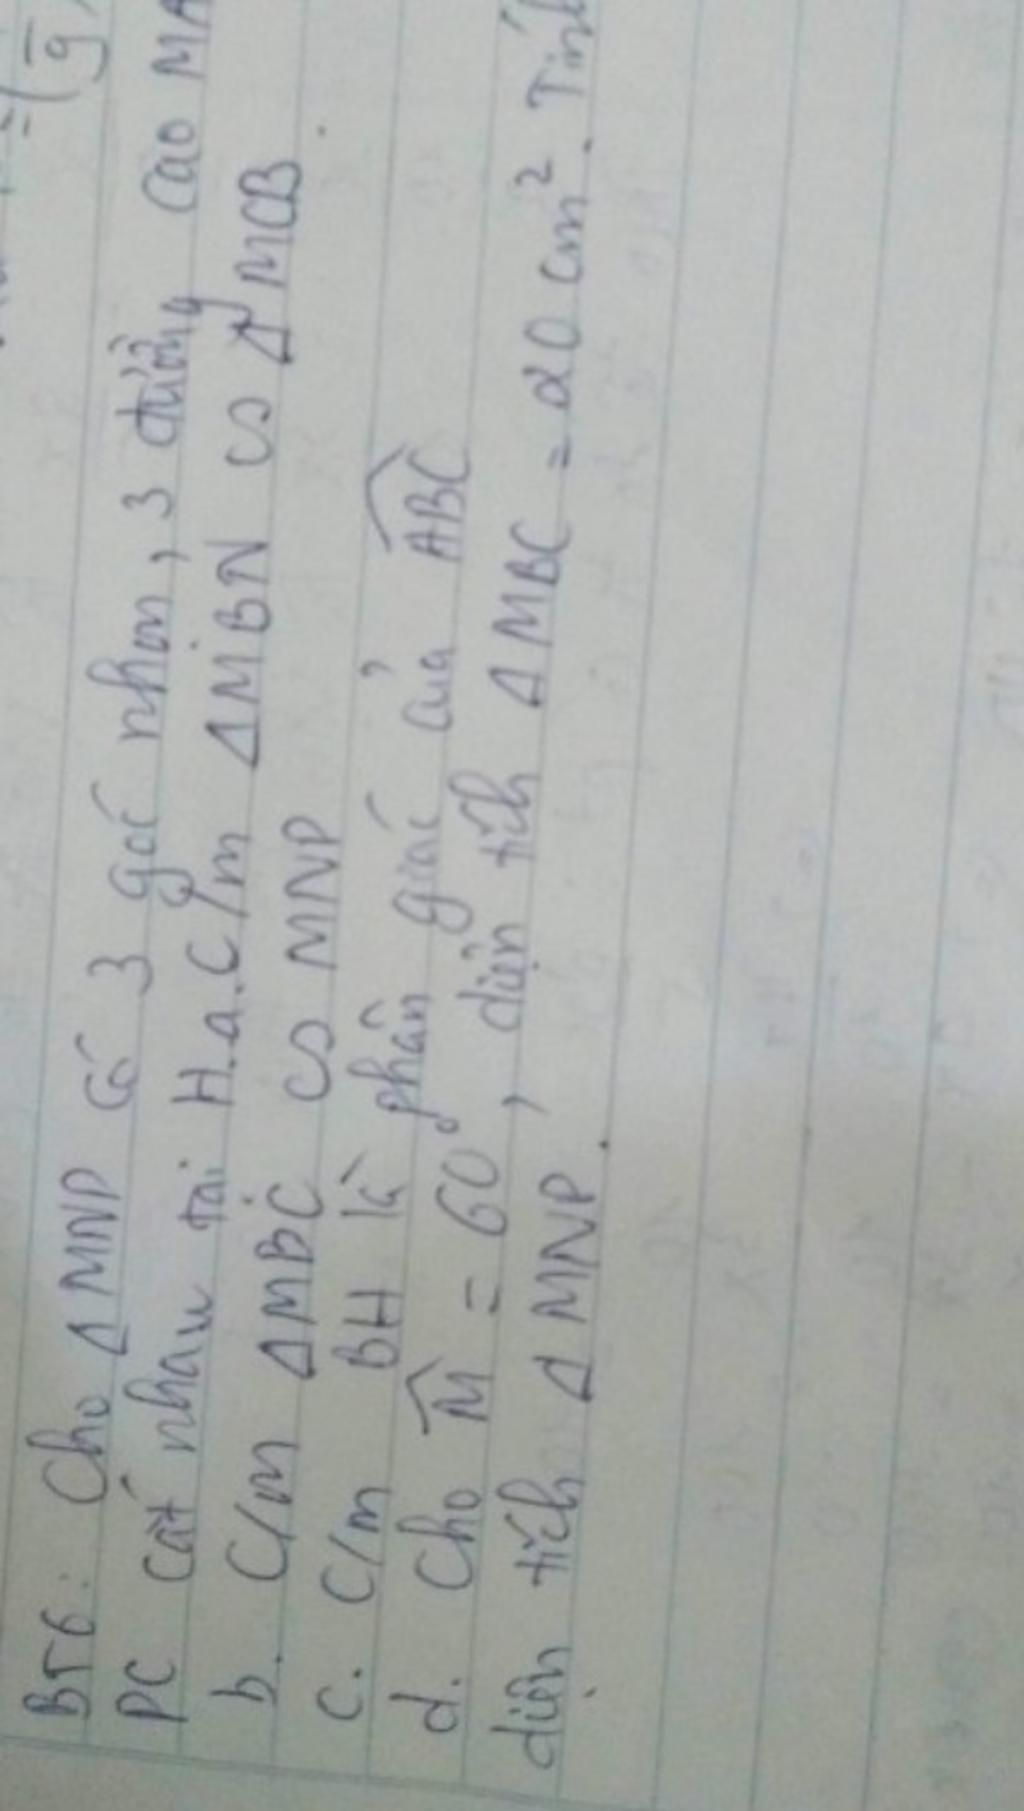 BT6: Cho Δ MNP có 3 góc nhọn, 3 đường cao MA
PC cắt nhau tại H. a. C/m ΔMBN ∽ Δ MCB
b. C/m ΔMBC ∽ MNP
c. C/m BH là phân giác của ABC
d. Cho M = 60°, diện tích Δ MBC = 20 cm². Tính
diện tích Δ MNP.